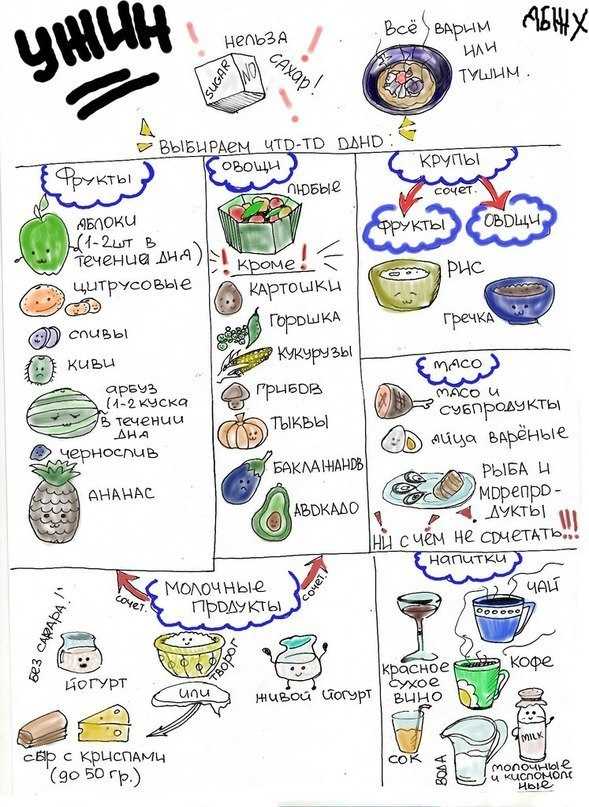 УЖИН
SUGAR
NO
НЕЛЬЗЯ
САХАР!
ВСЁ ВАРИМ
ИЛИ
ТУШИМ.
АБЖХ
ВЫБИРАЕМ ЧТО-ТО ОДНО:
ФРУКТЫ
ЯБЛОКИ
(1-2ШТ В
ТЕЧЕНИИ ДНЯ)
ЦИТРУСОВЫЕ
СЛИВЫ
КИВИ
АРБУЗ
(1-2 КУСКА
В ТЕЧЕНИИ
ДНЯ
ЧЕРНОСЛИВ
АНАНАС
ОВОЩИ
ЛЮБЫЕ
! КРОМЕ !
КАРТОШКИ
ГОРОШКА
КУКУРУЗЫ
ГРИБОВ
ТЫКВЫ
БАКЛАЖАНОВ
АВОКАДО
КРУПЫ
СОЧЕТ.
ФРУКТЫ
ОВОЩИ
РИС
ГРЕЧКА
МЯСО
МЯСО И
СУБПРОДУКТЫ
ЯЙЦА ВАРЁНЫЕ
РЫБА И
МОРЕПРО-
ДУКТЫ
НИ С ЧЕМ НЕ СОЧЕТАТЬ!!!
МОЛОЧНЫЕ
ПРОДУКТЫ
СОЧЕТ.
СОЧЕТ.
БЕЗ САХАРА!
ЙОГУРТ
ТВОРОГ
ИЛИ
ЖИВОЙ ЙОГУРТ
СЫР С КРИСПАМИ
(ДО 50 ГР.)
НАПИТКИ
ЧАЙ
КРАСНОЕ
СУХОЕ
ВИНО
КОФЕ
СОК
ВОДА
MILK
МОЛОЧНЫЕ
И КИСЛОМОЛОЧ
НЫЕ